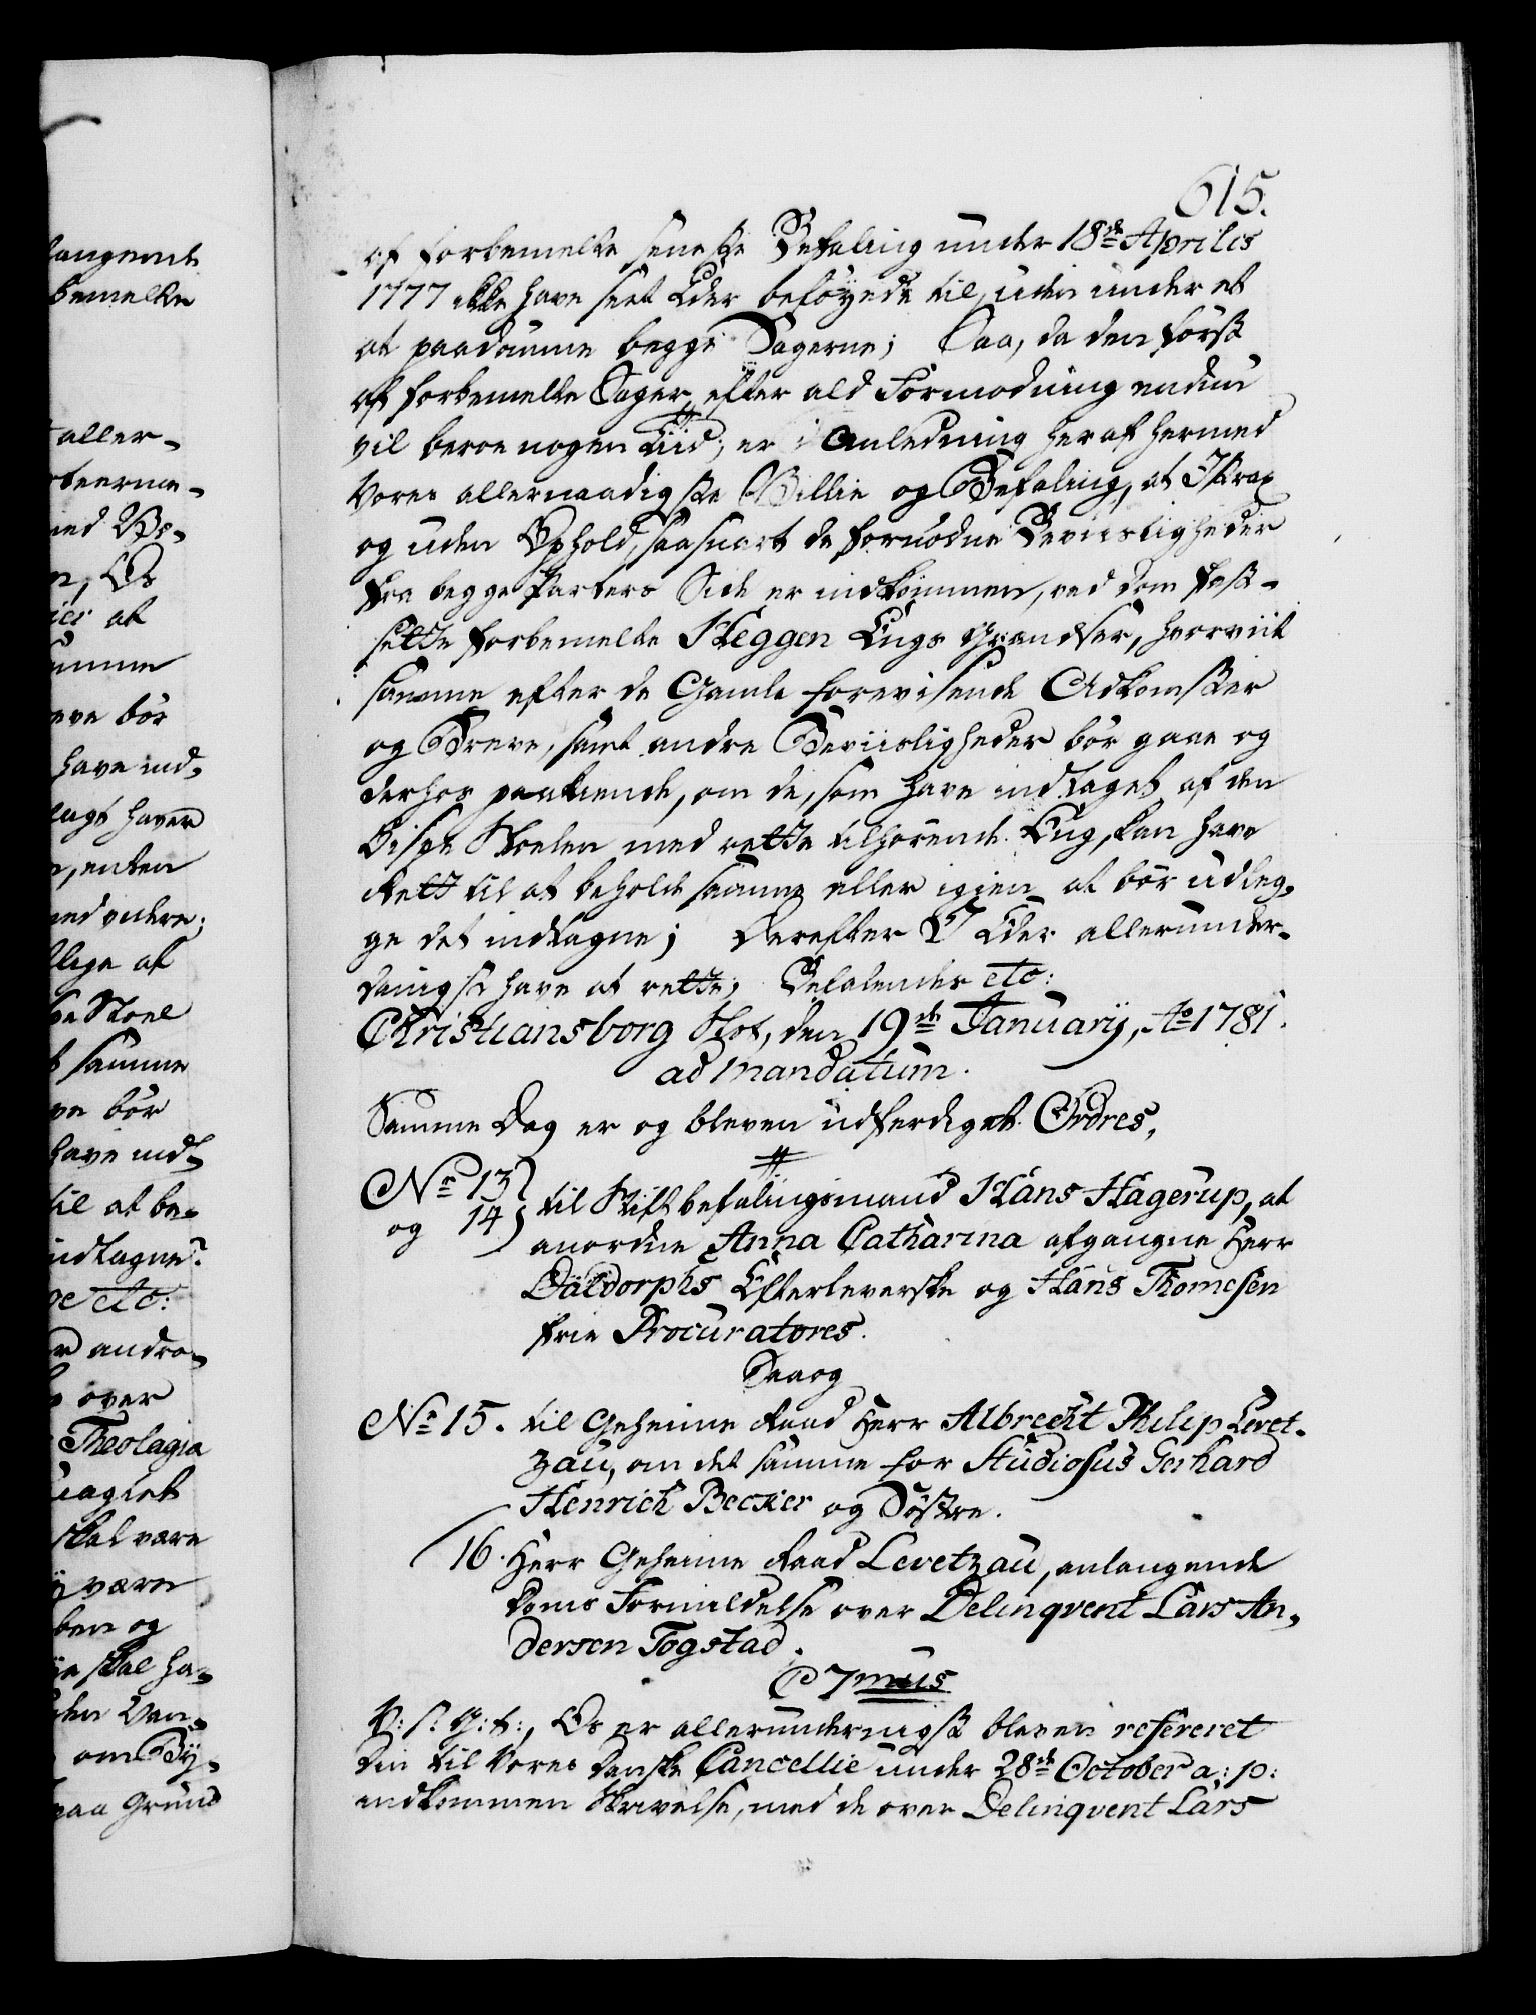 615.
af forbemelte seneste Befaling under 18de Aprilis
1777 ikke have seet Eder beföyede til, uden under et
at paadömme begge Sagerne; Saa, da den först
af forbemelte Sager, efter ald Formodning endnu
vil beroe nogen Tiid; er i Anledning heraf hermed
Vores allernaadigste Villie og Befaling, at I strax
og uden Ophold, saasnart de fornödne Beviisligheder
fra begge Parters Side er indkommen, ved Dom fast-
sette forbemelte Heggen Eugs Grændser, hvorviit
samme efter de Gamle forevisende Adkomster
og Breve, samt andre Beviisligheder bör gaae og
derhos paakiende, om de, som have indtaget af den
Bispe Stoelen med rette tilhörende Eug, kan have
Rett til at beholde samme eller igien at bör udleg-
ge det indtagne; Derefter I Eder allerunder-
danigst have at rette; Befalendes etc:
Christiansborg Slot, den 19de January, Ao 1781.
ad mandatum.
Samme Dag er og bleven udferdiget Ordres,
No 13
og 14
til Stiftbefalingsmand Hans Hagerup, at
anordne Anna Catharina afgangne Herr
Daldorphs Efterleverske og Hans Thomesen
frie Procuratores.
Saaog
No 15. til Geheime Raad Herr Albrecht Philip Levet-
zau, om det samme for Studiosus Gerhard
Henrich Becker og Söstre.
16. Herr Geheime Raad Levetzau, anlangende
Doms Formildelse over Delinqvent Lars An-
dersen Togstad.
C 7mus
V: S: G: t:, Os er allerunderdanigst bleven refereret
Din til Vores Danske Cancellie under 28de October a: p:
indkommen Skrivelse, med de over Delinqvent Lars